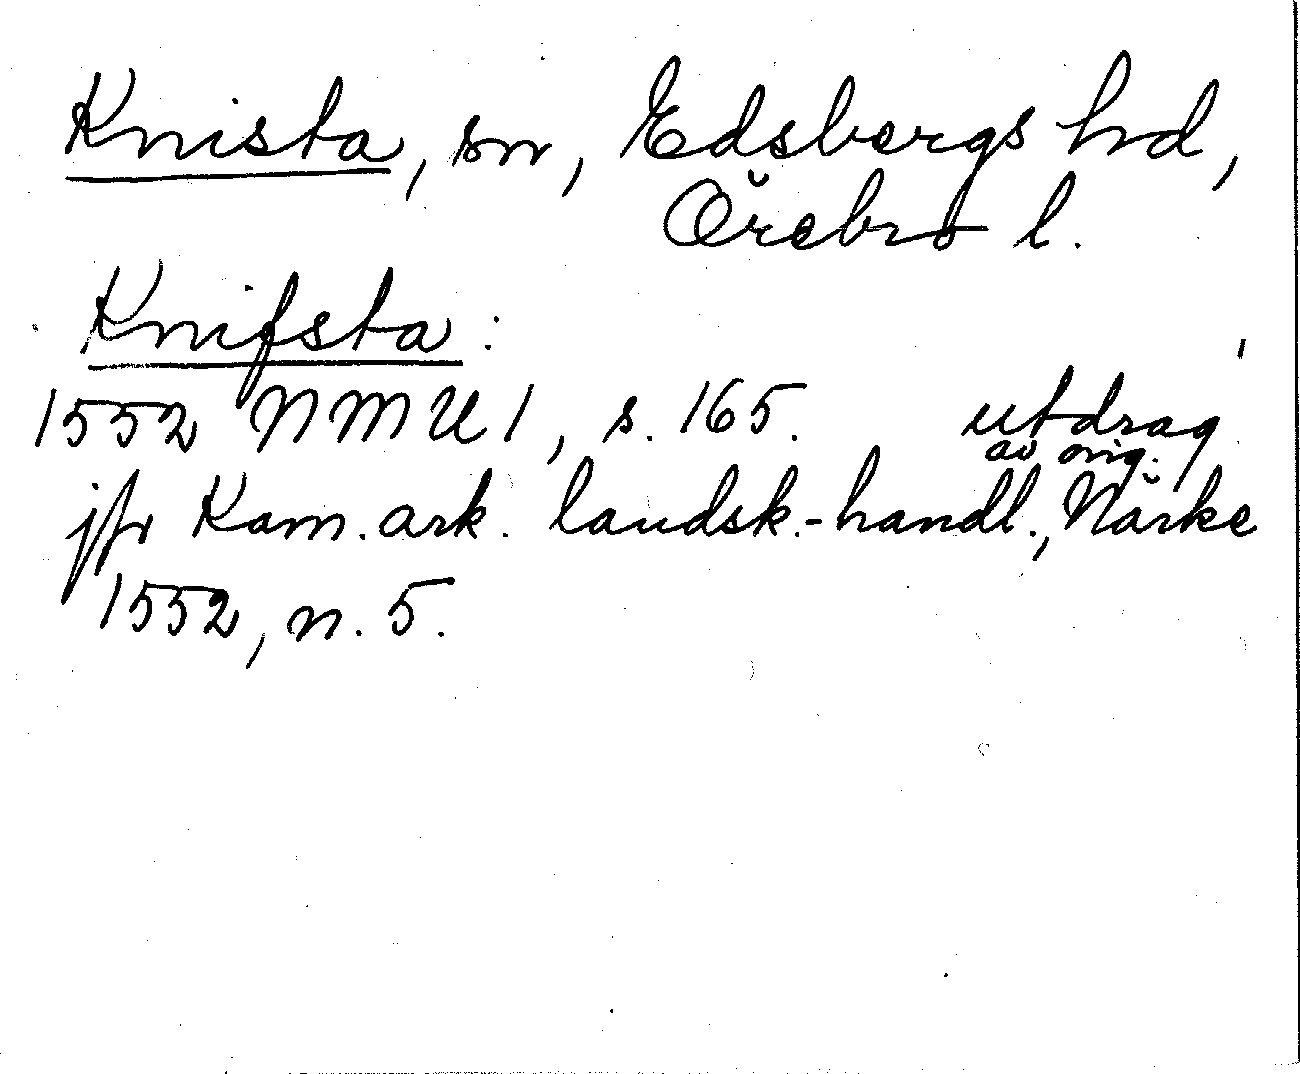 Knista, sn, Edsbergs hd,
Örebro l.
Knifsta:
1552 NMU 1, s. 165. utdrag
av orig.
jfr Kam.ark. landsk.-handl., Närke
1552, n. 5.